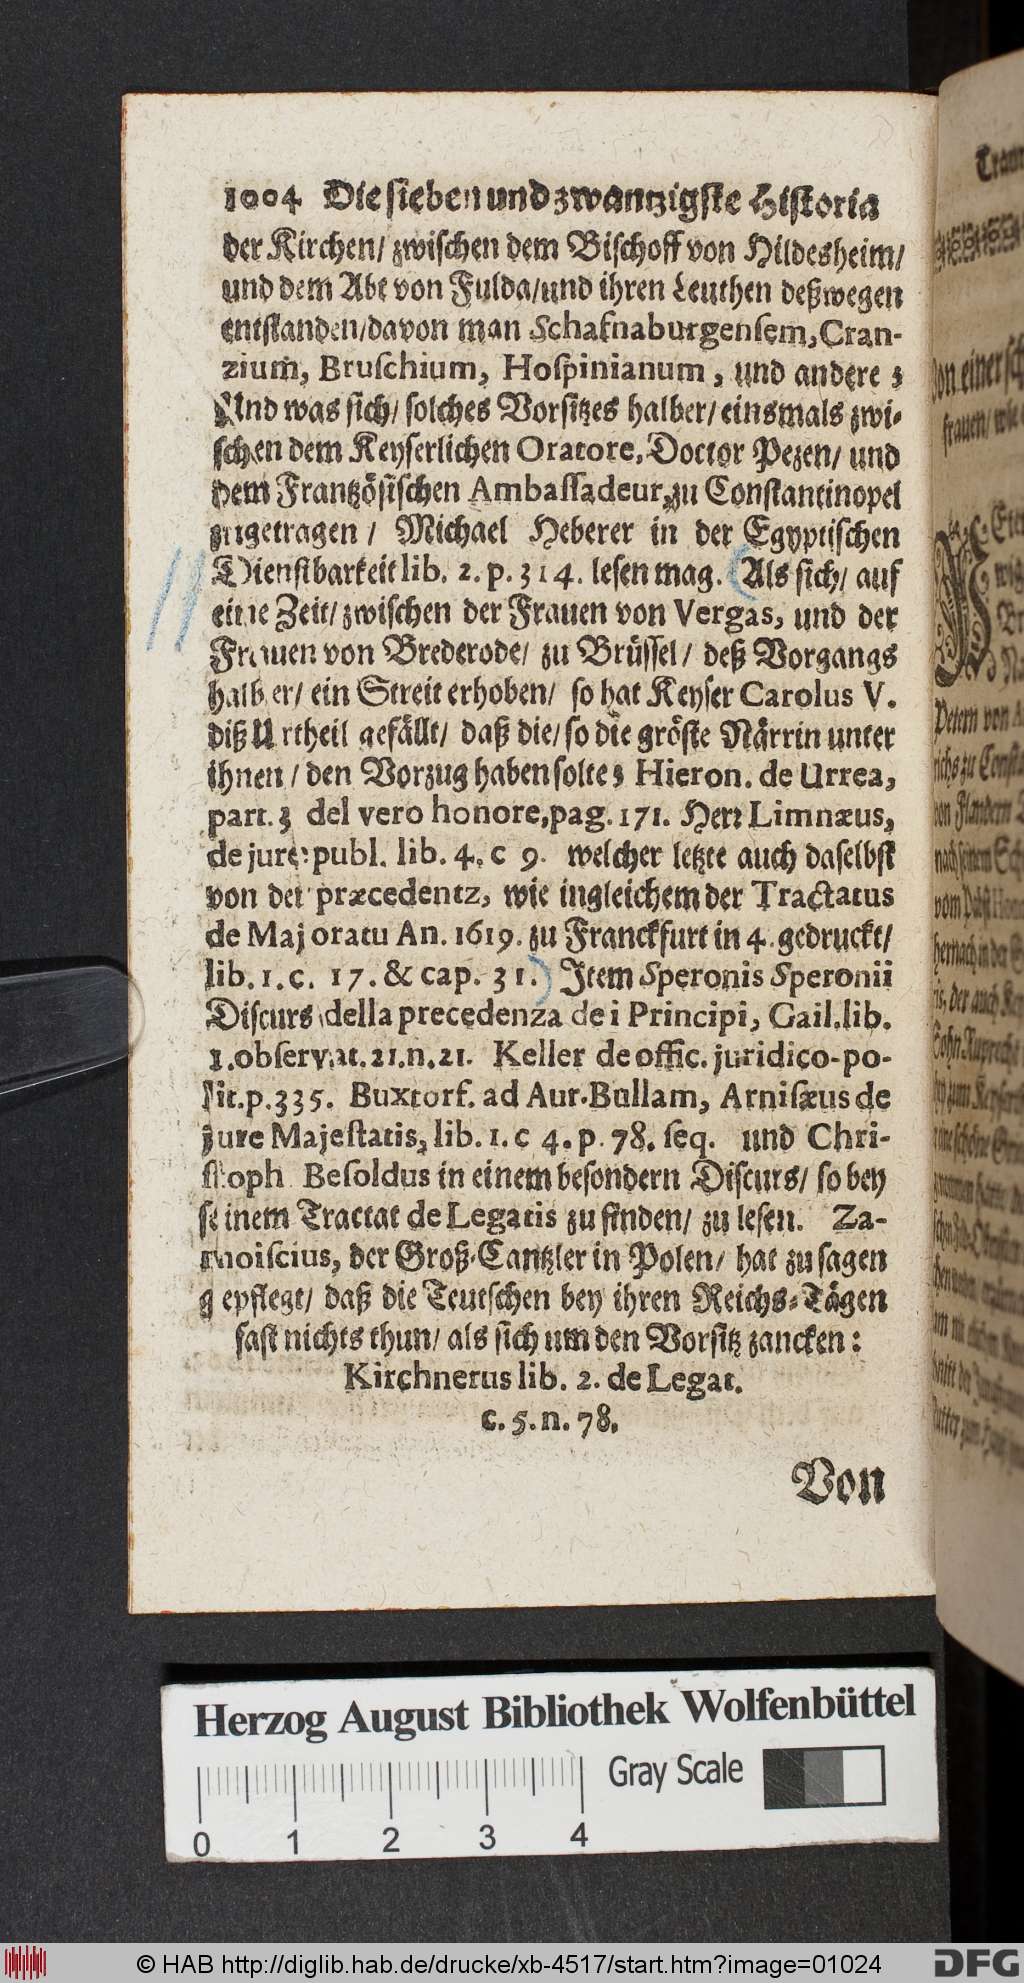 1004 Die sieben und zwantzigste Historia
der Kirchen/ zwischen dem Bischoff von Hildesheim/
und dem Abt von Fulda/ und ihren Leuthen deßwegen
entstanden/ davon man Schafnaburgensem, Cran-
zium, Bruschium, Hospinianum, und andere;
Und was sich/ solches Vorsitzes halber/ einsmals zwi-
schen dem Keyserlichen Oratore, Doctor Pezen/ und
dem Frantzösischen Ambassadeur, zu Constantinopel
zugetragen / Michael Heberer in der Egyptischen
Dienstbarkeit lib. 2. p. 314. lesen mag. Als sich/ auf
eine Zeit/ zwischen der Frauen von Vergas, und der
Frauen von Brederode/ zu Brüssel/ deß Vorgangs
halber/ ein Streit erhoben/ so hat Keyser Carolus V.
diß Urtheil gefällt/ daß die/ so die gröste Närrin unter
ihnen / den Vorzug haben solte; Hieron. de Urrea,
part. 3 del vero honore, pag. 171. Herr Limnæus,
de jure publ. lib. 4. c 9. welcher letzte auch daselbst
von der præcedentz, wie ingleichem der Tractatus
de Majoratu An. 1619. zu Franckfurt in 4. gedruckt/
lib. 1. c. 17. & cap. 31. Item Speronis Speronii
Discurs della precedenza dei Principi, Gail. lib.
1. observat. 21. n. 21. Keller de offic. juridico-po-
lit. p. 335. Buxtorf. ad Aur. Bullam, Arnisæus de
jure Majestatis, lib. 1. c 4. p. 78. seq. und Chri-
stoph Besoldus in einem besondern Discurs/ so bey
seinem Tractat de Legatis zu finden/ zu lesen. Za-
moiscius, der Groß-Cantzler in Polen/ hat zu sagen
gepflegt/ daß die Teutschen bey ihren Reichs-Tägen
fast nichts thun/ als sich um den Vorsitz zancken:
Kirchnerus lib. 2. de Legat.
c. 5. n. 78.
Von
Herzog August Bibliothek Wolfenbüttel
Gray Scale
0 1 2 3 4
© HAB http://diglib.hab.de/drucke/xb-4517/start.htm?image=01024
DFG